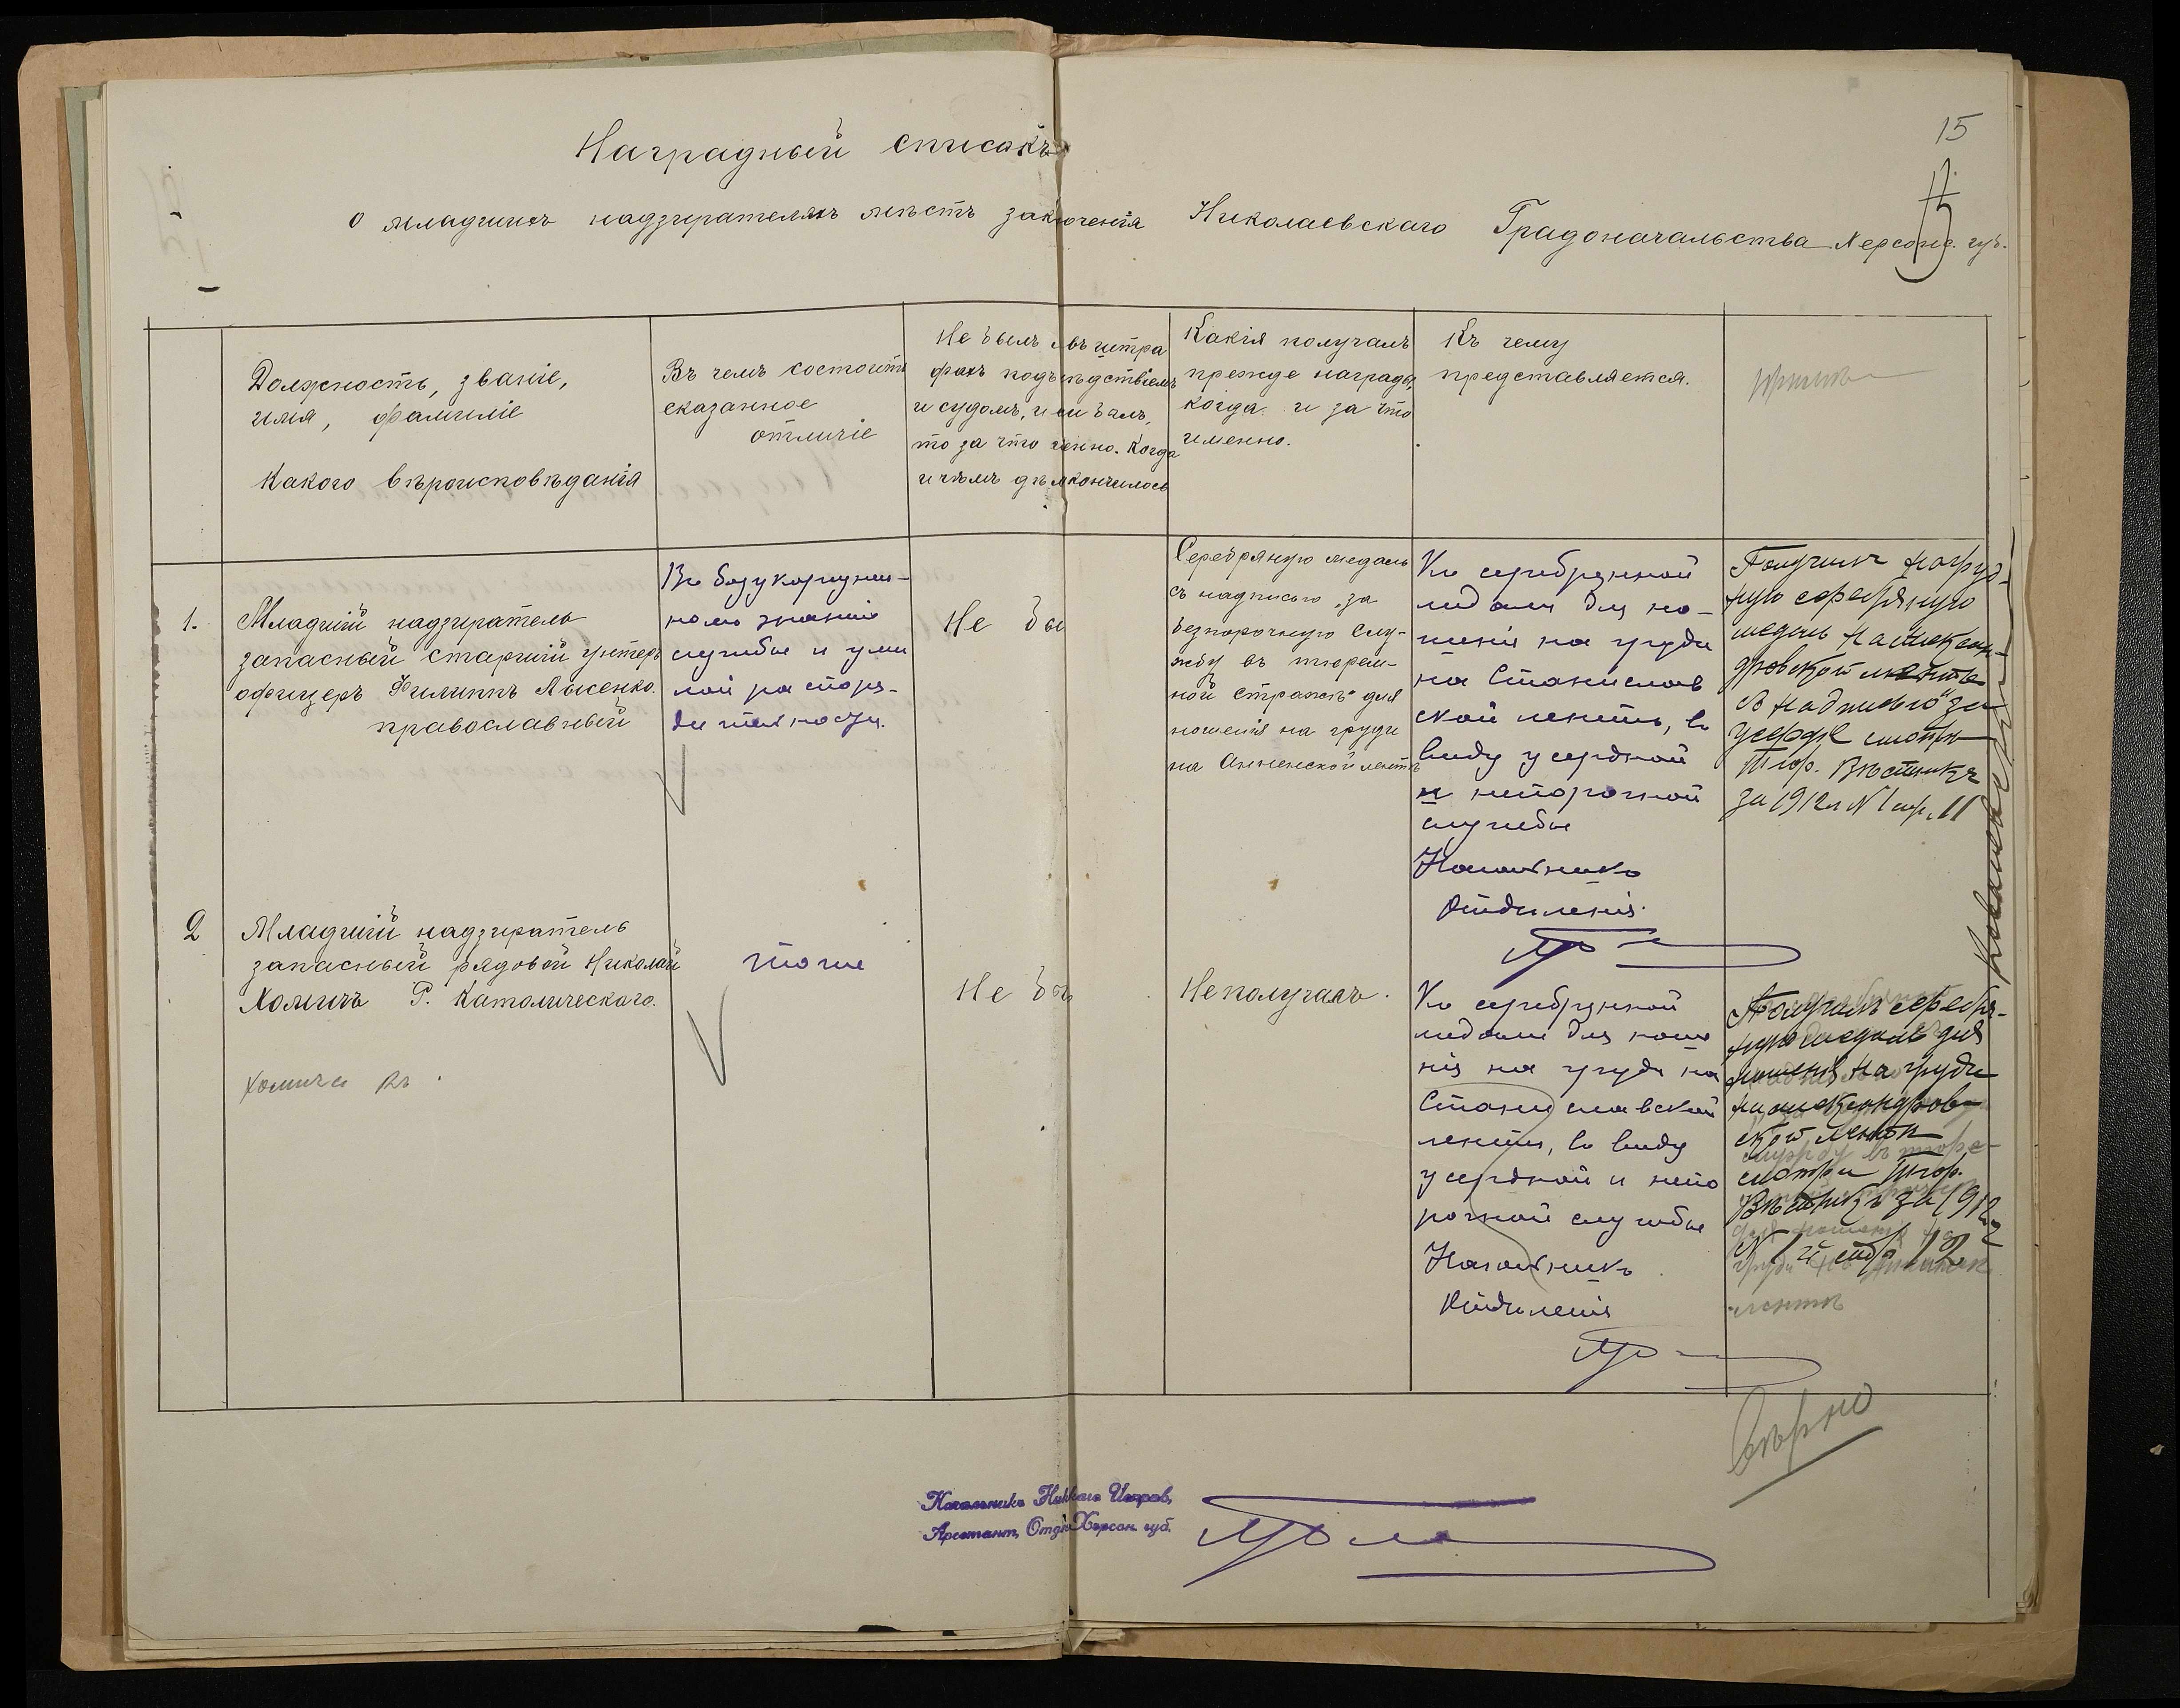 15
Наградный списокъ
о младшихъ надзирателяхъ мѣстъ заключенія Николаевскаго Градоначальства Херсонс. губ.
Должность, званіе,
имя, фамиліе
Какого вѣроисповѣданія
Въ чемъ состоитъ
сказанное
отличіе
Не былъ въ штра
фахъ подъ слѣдствіемъ
и судомъ, если былъ,
то за что именно. Когда
и чѣмъ дѣло кончилось
Какія получалъ
прежде награды,
когда и за что
именно.
Къ чему
представляется.
1.
Младшій надзиратель
запасный старшій унтеръ
офицеръ Филиппъ Лысенко.
православный
Въ безукоризнен-
номъ знаніи
службы и умѣ
лой распоря-
дительности.
Не бы
Серебряную медаль
съ надписью „за
безпорочную Слу-
жбу въ тюрем-
ной стражѣ“ для
ношенія на груди
на Анненской лентѣ
Къ серебрянной
медали для но-
шенія на груди
на Станислав
ской лентѣ, въ
виду усердной
и непорочной
службы
Начальникъ
Отдѣленія
Получилъ нагруд-
ную серебряную
медаль на Алексан-
дровской лентѣ
съ надписью "за
усердіе" смотри
Тюр. Вѣстникъ
за 1912 г N 1 стр. 11
2
Младшій надзиратель
запасный рядовой Николай
Хомичъ Р. Католическаго.
Хомича
тоже
Не бы
Не получалъ.
Къ серебрянной
медали для ноше
нія на груди на
Станиславской
лентѣ, въ виду
усердной и непо
рочной службы
Начальникъ
Отдѣленія
Получилъ серебря-
ную медаль для
ношенія на груди
на Александров-
ской лентѣ
смотри Тюр.
Вѣстникъ за 1912 г
N 1й стр 12
лентѣ
Вѣрно
Начальникъ Ник‑каго Исправ.
Арестант. Отдѣ Херсон. губ.